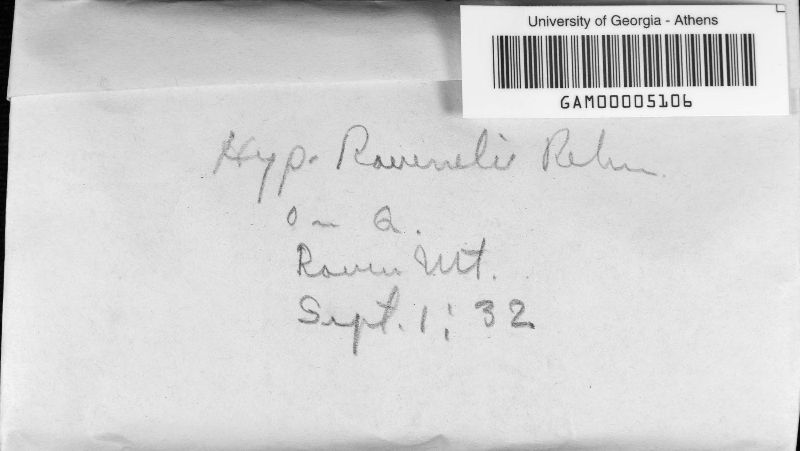 University of Georgia - Athens
GAM00005106
Hyp. Ravenelii Rehm.
on Q.
Raven Mt.
Sept. 1, '32